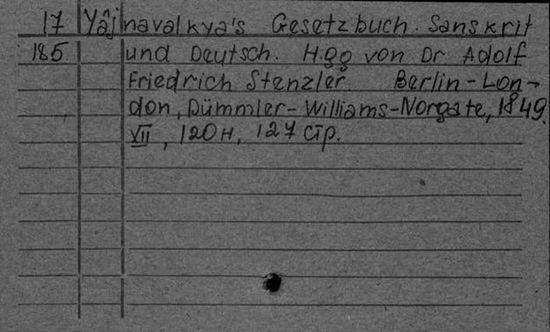 17 Yâjnavalkya's Gesetzbuch. Sanskrit
185 und Deutsch. Hgg von Dr Adolf
Friedrich Stenzler. Berlin-Lon-
don, Dümmler-Williams-Norgate, 1849.
VII, 120н, 127 стр.